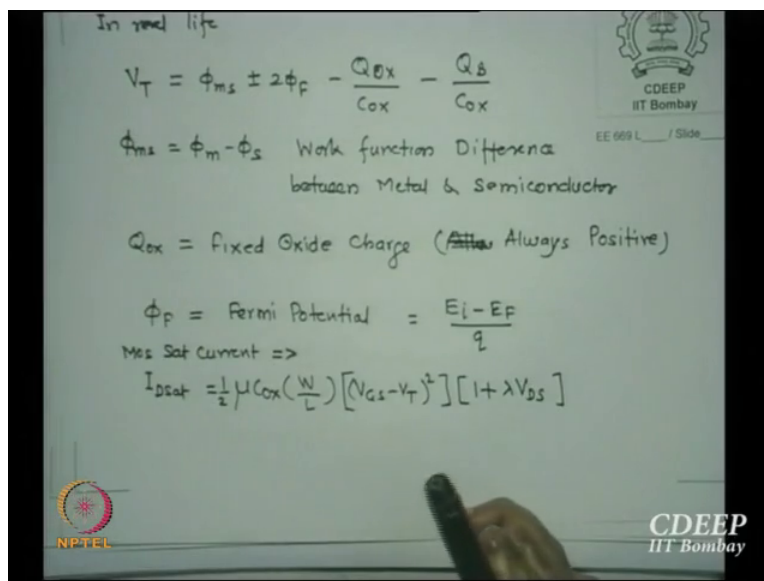 In real life
V_T = ϕ_ms ± 2ϕ_F - Q_ox/C_ox - Q_B/C_ox
CDEEP
IIT Bombay
EE 669 L___ / Slide___
ϕ_ms = ϕ_m - ϕ_s Work function Difference
between Metal & Semiconductor
Q_ox = Fixed Oxide Charge ( Always Positive)
ϕ_F = Fermi Potential = (E_i - E_F)/q
Mos Sat Current =>
I_Dsat = 1/2 μ C_ox (W/L) [(V_GS - V_T)^2] [1 + λV_DS]
NPTEL
CDEEP
IIT Bombay